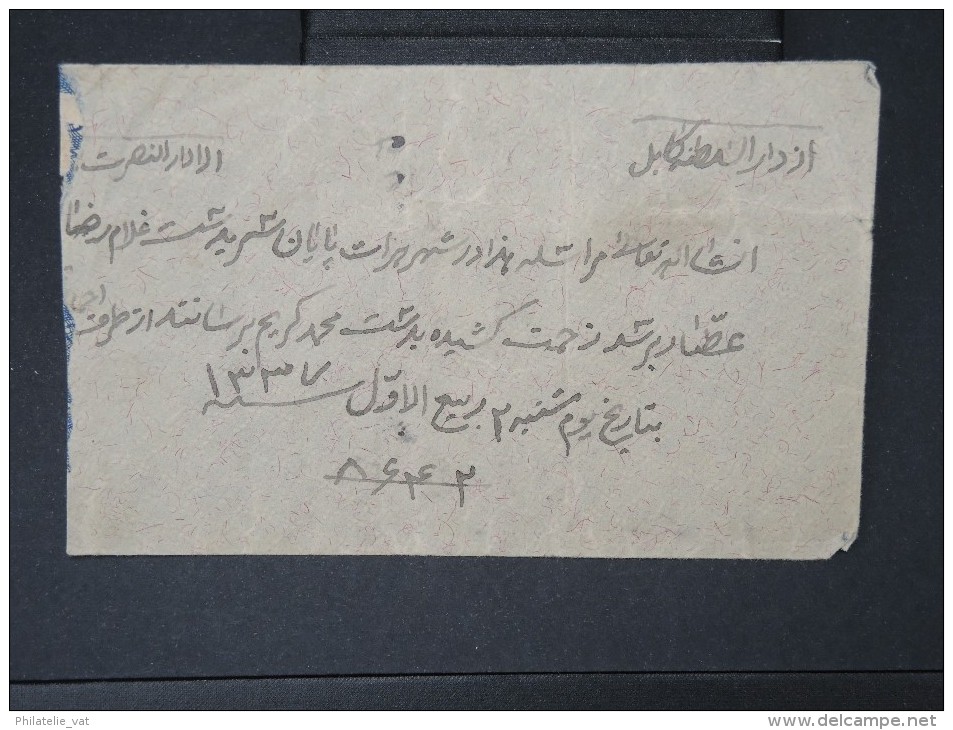 از دار السلطنه کابل
الا دار النصرت
انشاالله تعالی مراسله هذا در شهر هرات پایان شهر بدست غلام رضا
عطار برسد زحمت کشیده بدست محمد کریم برسانند از طرف
بتاریخ یوم شنبه ۲ ربیع الاول سنه ۱۳۳۷
۸۶۴۲
Philatelie_vat
http://www.delcampe.net